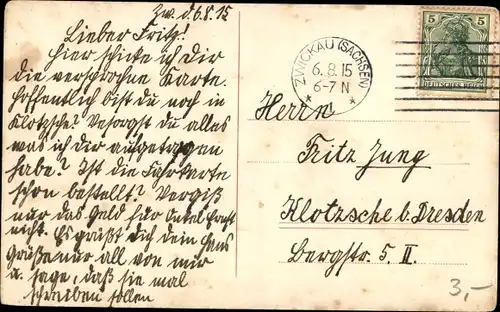 Zw. d. 6.8.15
Lieber Fritz!
Hier schicke ich Dir
die versprochne Karte.
Hoffentlich bist du noch in
Klotzsche? Besorgst du alles
was ich dir aufgetragen
habe? Ist die Fahrkarte
schon bestellt? Vergiß
nur das Geld für Onkel Ernst
nicht. Es grüßt dich dein Hans
Grüße nur all von mir
u. sage, daß sie mal
schreiben sollen
ZWICKAU (SACHSEN)
6.8.15
6-7 N
5 5
DEUTSCHES REICH
Herrn
Fritz Jung
Klotzsche b. Dresden
Bergstr. 5. II.
3,-